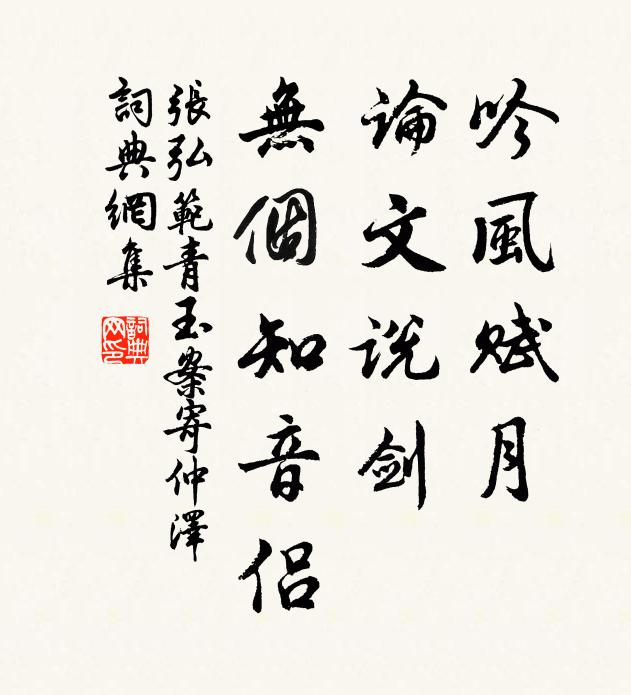 吟風賦月
論文説剑
無個知音侶
張弘範青玉案寄仲澤
詞典網集
詞典网印